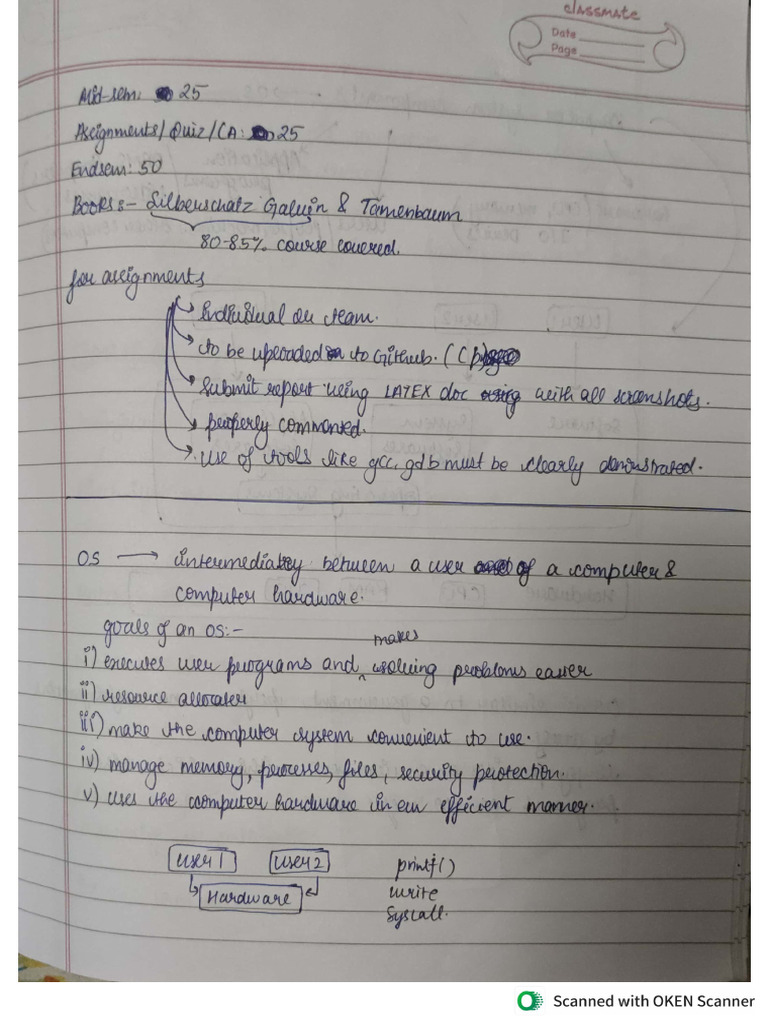 classmate
Date
Page
Mid-sem: 25
Assignments/Quiz/CA: 25
Endsem: 50
Books:- Silberschatz Galvin & Tanenbaum
80-85% course covered.
for assignments
Individual or team.
to be uploaded to Github. (Cp)
Submit report using LATEX doc with all screenshots.
properly commented.
use of tools like gcc, gdb must be clearly demonstrated.
OS → intermediatey between a user of a computer &
computer hardware.
goals of an OS:-
makes
i) executes user programs and ^ solving problems easier
ii) resource allocater
iii) make the computer system convenient to use.
iv) manage memory, processes, files, security protection.
v) uses the computer hardware in an efficient manner.
user 1 user 2 printf()
Hardware write
Syscall.
Scanned with OKEN Scanner